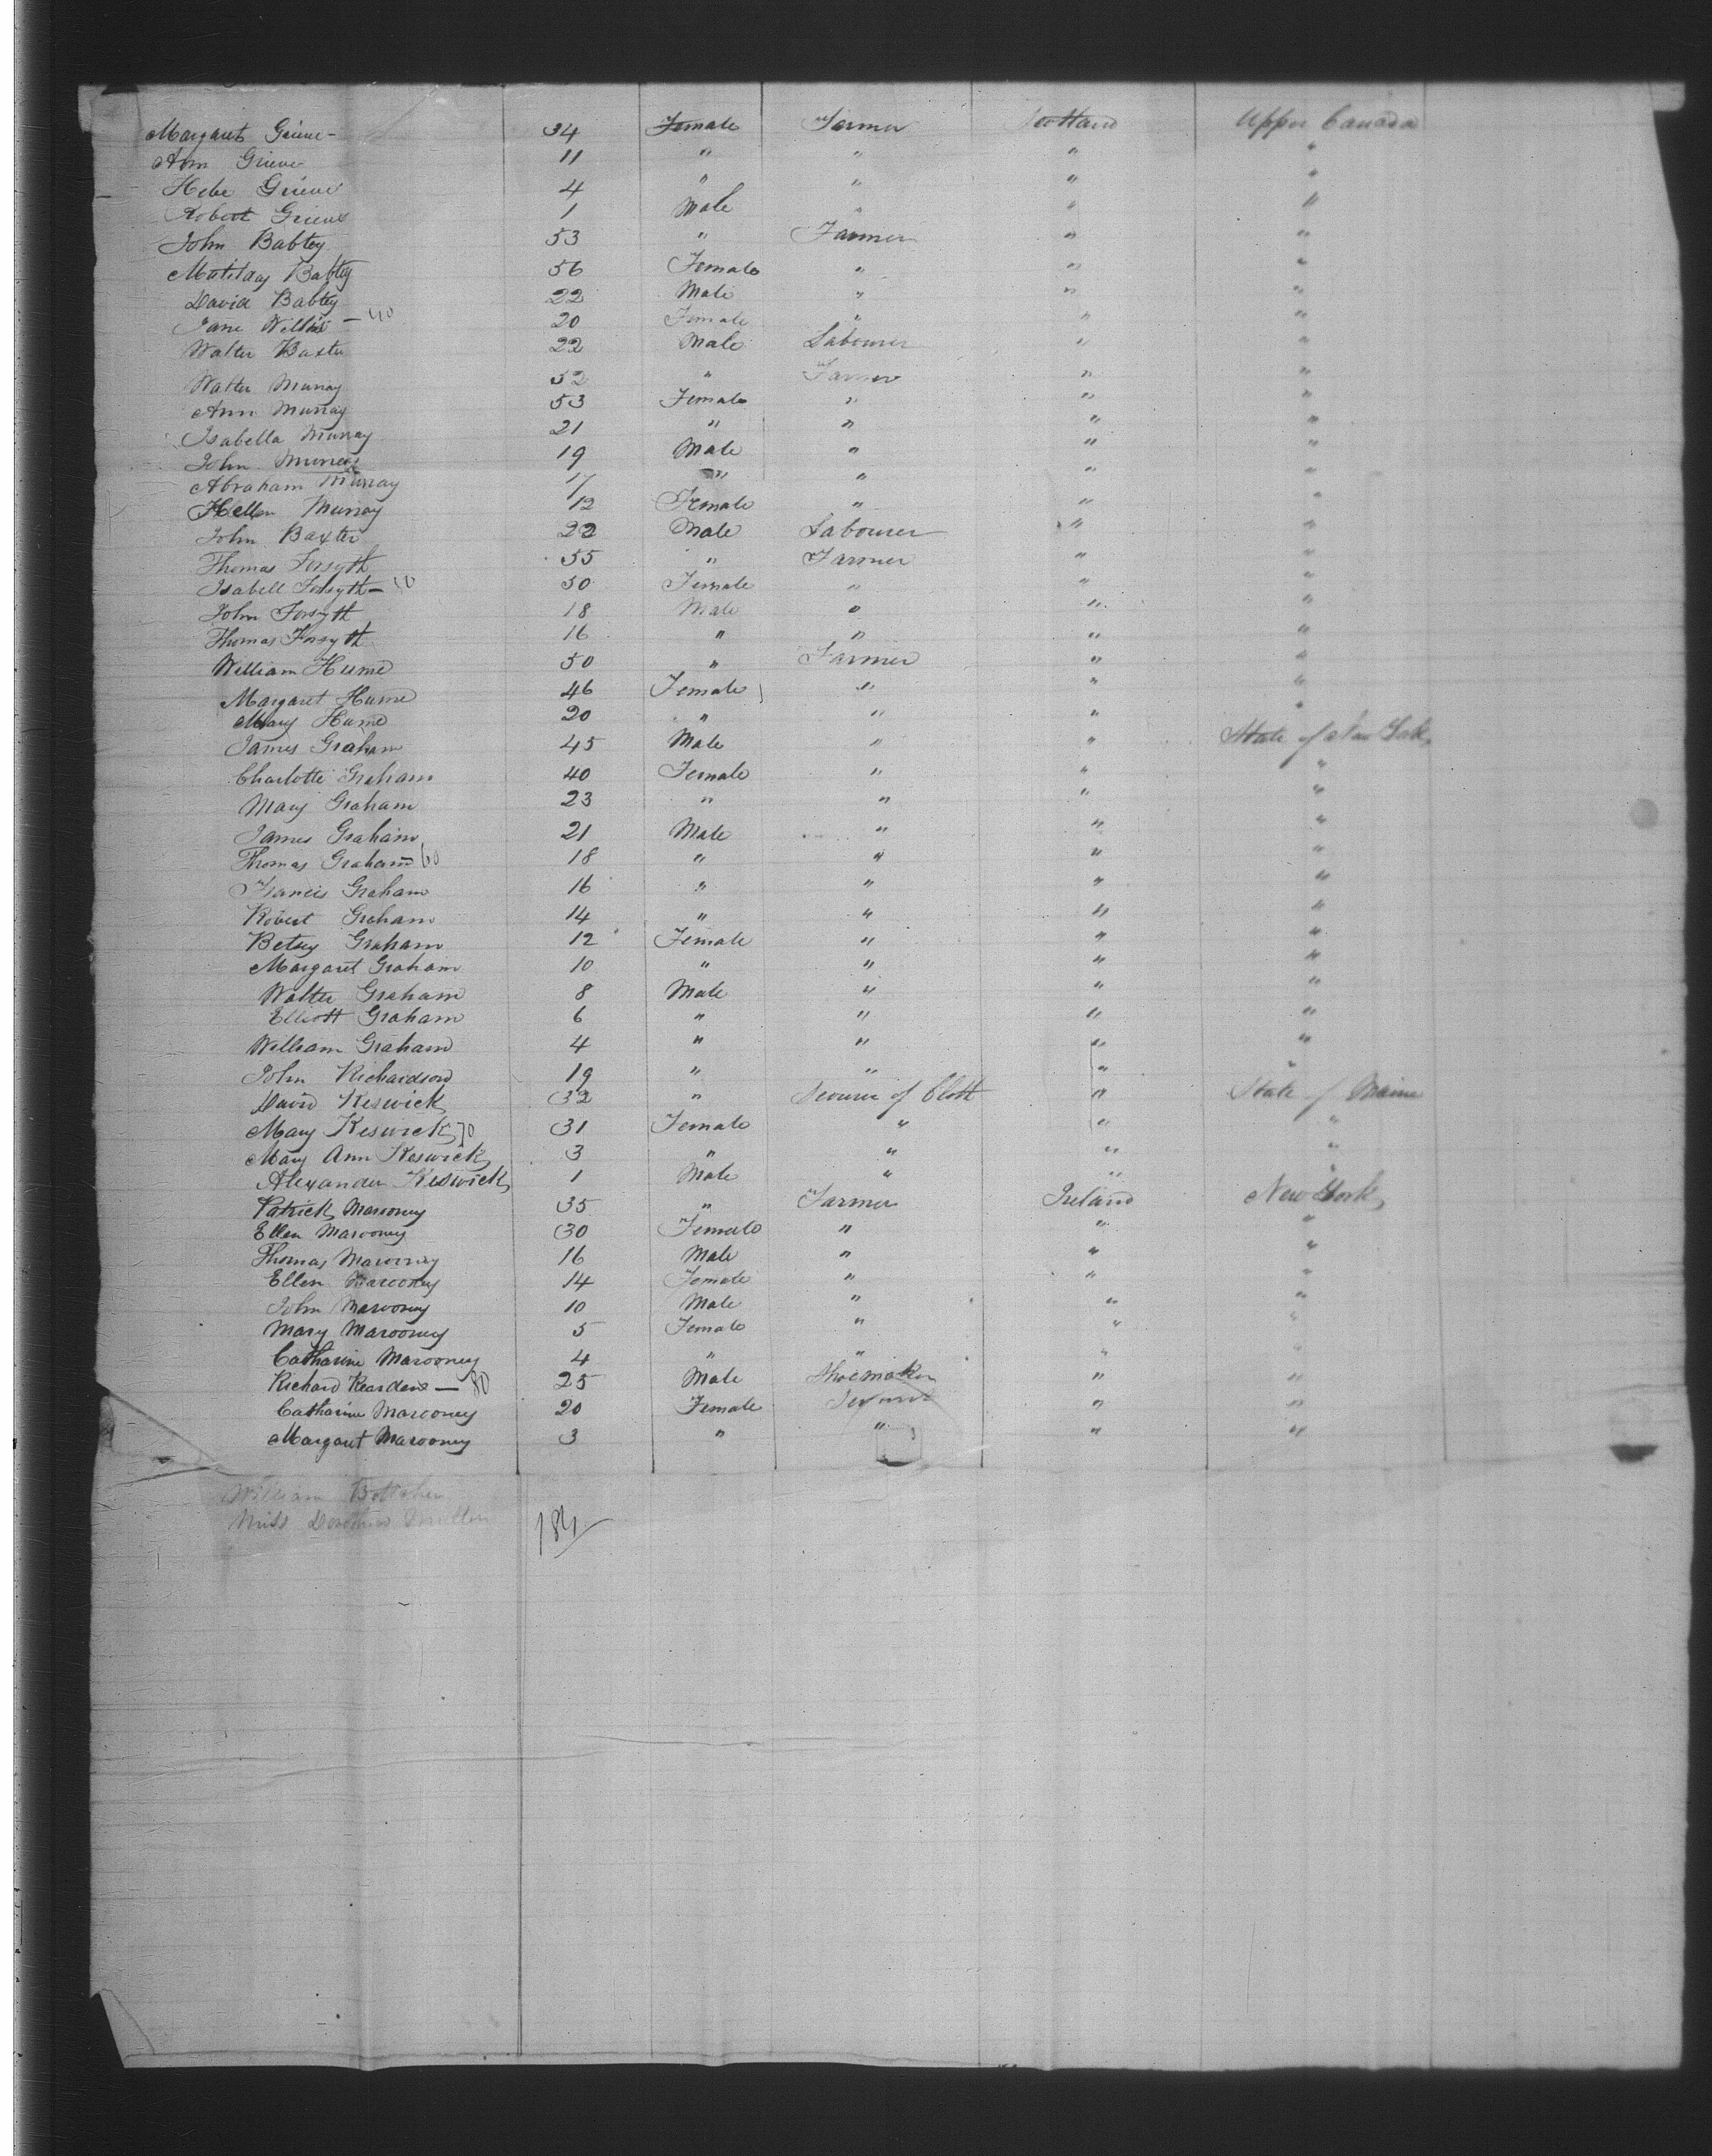 Margaret Grieve - 34 Female Farmer Scotland Upper Canada
Ann Grieve 11 " " " "
Hebe Grieve 4 " " " "
Robert Grieve 1 Male " " "
John Babtey 53 " Farmer " "
Matilday Babtey 56 Female " " "
David Babtey 22 Male " " "
Jane Willis - 40 20 Female " " "
Walter Baxter 22 Male Labourer " "
Walter Murray 52 " Farmer " "
Ann Murray 53 Female " " "
Isabella Murray 21 " " " "
John Murray 19 Male " " "
Abraham Murray 17 " " " "
Hellen Murray 12 Female " " "
John Baxter 22 Male Labourer " "
Thomas Forsyth 55 " Farmer " "
Isabell Forsyth - 50 Female " " "
John Forsyth 18 Male " " "
Thomas Forsyth 16 " " " "
William Hume 50 " Farmer " "
Margaret Hume 46 Female " " "
Mary Hume 20 " " " "
James Graham 45 Male " " State of New York
Charlotte Graham 40 Female " " "
Mary Graham 23 " " " "
James Graham 21 Male " " "
Thomas Graham - 60 18 " " " "
Francis Graham 16 " " " "
Robert Graham 14 " " " "
Betsey Graham 12 Female " " "
Margaret Graham 10 " " " "
Walter Graham 8 Male " " "
Elliott Graham 6 " " " "
William Graham 4 " " " "
John Richardson 19 " " " "
David Keswick 32 " Scourer of Cloth " State of Maine
Mary Keswick 70 31 Female " " "
Mary Ann Keswick 3 " " " "
Alexander Keswick 1 Male " " "
Patrick Marooney 35 " Farmer Ireland New York
Ellen Marooney 30 Female " " "
Thomas Marooney 16 Male " " "
Ellen Marooney 14 Female " " "
John Marooney 10 Male " " "
Mary Marooney 5 Female " " "
Catharine Marooney 4 " " " "
Richard Reardens - 80 25 Male Shoemaker " "
Catharine Marooney 20 Female " "
Margaret Marooney 3 " " " "
William
Miss
184